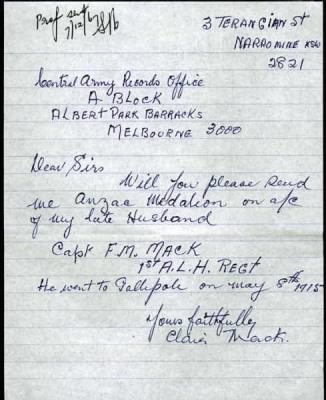 3 TERANGIAN ST
NARROMINE NSW
2821
Central Army Records Office
A. BLOCK
ALBERT PARK BARRACKS
MELBOURNE 3000
Dear Sirs
Will you please send
me Anzac Medalion on a/c
of my late Husband
Capt F.M. MACK
1st A.L.H. REGT
He went to Gallipoli on may 8th 1915
Yours faithfully
Clair Mack.